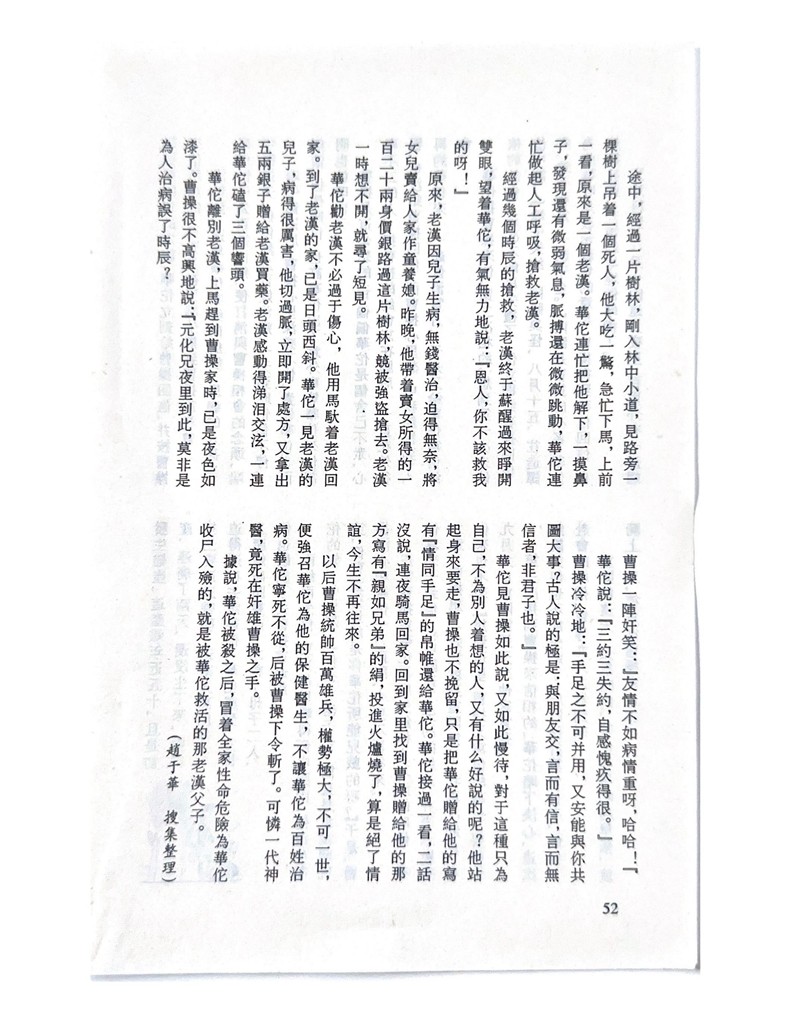 途中，經過一片樹林，剛入林中小道，見路旁一
棵樹上吊着一個死人，他大吃一驚，急忙下馬，上前
一看，原來是一個老漢。華佗連忙把他解下，一摸鼻
子，發現還有微弱氣息，脈搏還在微微跳動，華佗連
忙做起人工呼吸，搶救老漢。
經過幾個時辰的搶救，老漢終于蘇醒過來睜開
雙眼，望着華佗，有氣無力地説：『恩人，你不該救我
的呀！』
原來，老漢因兒子生病，無錢醫治，迫得無奈，將
女兒賣給人家作童養媳。昨晚，他帶着賣女所得的一
百二十兩身價銀路過這片樹林，競被強盜搶去。老漢
一時想不開，就尋了短見。
華佗勸老漢不必過于傷心，他用馬馱着老漢回
家。到了老漢的家，已是日頭西斜。華佗一見老漢的
兒子，病得很厲害，他切過脈，立即開了處方，又拿出
五兩銀子贈給老漢買藥。老漢感動得涕泪交泫，一連
給華佗磕了三個響頭。
華佗離別老漢，上馬趕到曹操家時，已是夜色如
漆了。曹操很不高興地説：『元化兄夜里到此，莫非是
為人治病誤了時辰？
曹操一陣奸笑：『友情不如病情重呀，哈哈！』
華佗説：『三約三失約，自感愧疚得很。』
曹操冷冷地：『手足之不可并用，又安能與你共
圖大事？古人説的極是：與朋友交，言而有信，言而無
信者，非君子也。』
華佗見曹操如此説，又如此慢待，對于這種只為
自己，不為別人着想的人，又有什么好説的呢？他站
起身來要走，曹操也不挽留，只是把華佗贈給他的寫
有『情同手足』的帛帷還給華佗。華佗接過一看，二話
沒説，連夜騎馬回家。回到家里找到曹操贈給他的那
方寫有『親如兄弟』的絹，投進火爐燒了，算是絕了情
誼，今生不再往來。
以后曹操統帥百萬雄兵，權勢極大，不可一世，
便強召華佗為他的保健醫生，不讓華佗為百姓治
病。華佗寧死不從，后被曹操下令斬了。可憐一代神
醫，竟死在奸雄曹操之手。
據説，華佗被殺之后，冒着全家性命危險為華佗
收尸入殮的，就是被華佗救活的那老漢父子。
（趙于華　搜集整理）
52